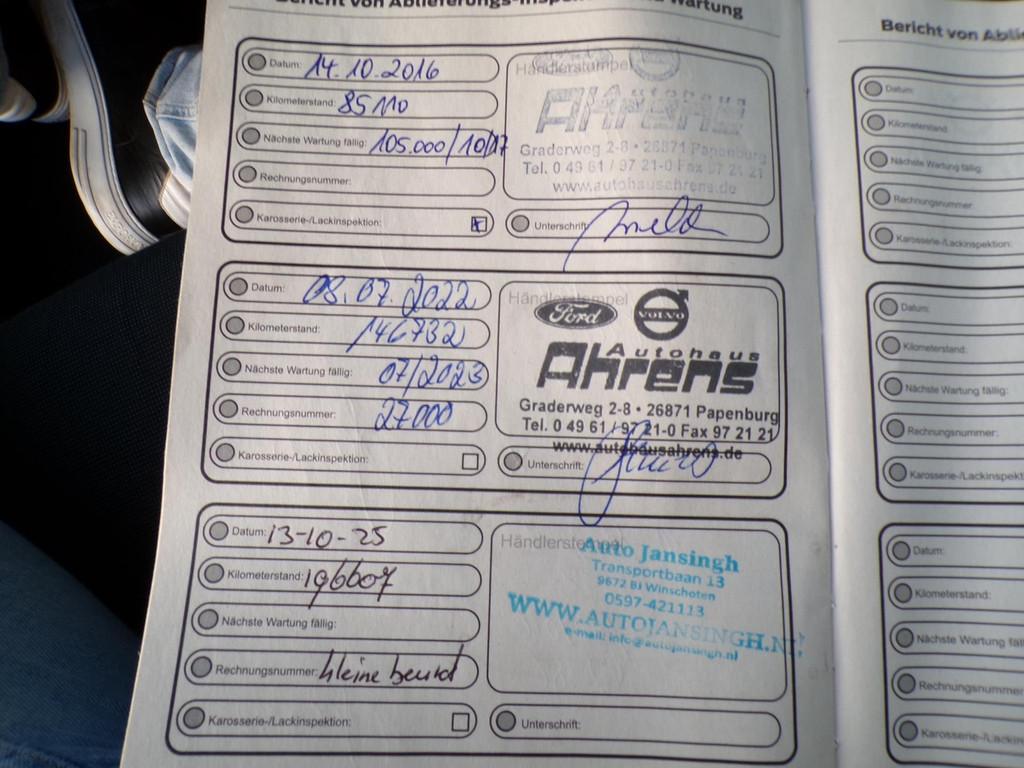 Bericht von Ablieferungs-Inspe Wartung
Datum: 14.10.2016
Kilometerstand: 85110
Nächste Wartung fällig: 105.000/10/17
Rechnungsnummer:
Karosserie-/Lackinspektion:
Händlerstempel
Autohaus
Ahrens
Graderweg 2-8 • 26871 Papenburg
Tel. 0 49 61 / 97 21-0 Fax 97 21 21
www.autohausahrens.de
Unterschrift:
Datum: 08.07.2022
Kilometerstand: 146732
Nächste Wartung fällig: 07/2023
Rechnungsnummer: 27000
Karosserie-/Lackinspektion:
Händlerstempel
Ford VOLVO
Autohaus
Ahrens
Graderweg 2-8 • 26871 Papenburg
Tel. 0 49 61 / 97 21-0 Fax 97 21 21
www.autohausahrens.de
Unterschrift:
Datum: 13-10-25
Kilometerstand: 196607
Nächste Wartung fällig:
Rechnungsnummer: kleine beurt
Karosserie-/Lackinspektion:
Händlerstempel
Auto Jansingh
Transportbaan 13
9672 BJ Winschoten
0597-421113
WWW.AUTOJANSINGH.NL
e-mail: info@autojansingh.nl
Unterschrift:
Bericht von Ablie
Datum:
Kilometerstand:
Nächste Wartung fällig:
Rechnungsnummer:
Karosserie-/Lackinspektion:
Datum:
Kilometerstand:
Nächste Wartung fällig:
Rechnungsnummer:
Karosserie-/Lackinspekt
Datum:
Kilometerstand:
Nächste Wartung fäll
Rechnungsnummer
Karosserie-/Lackinsp